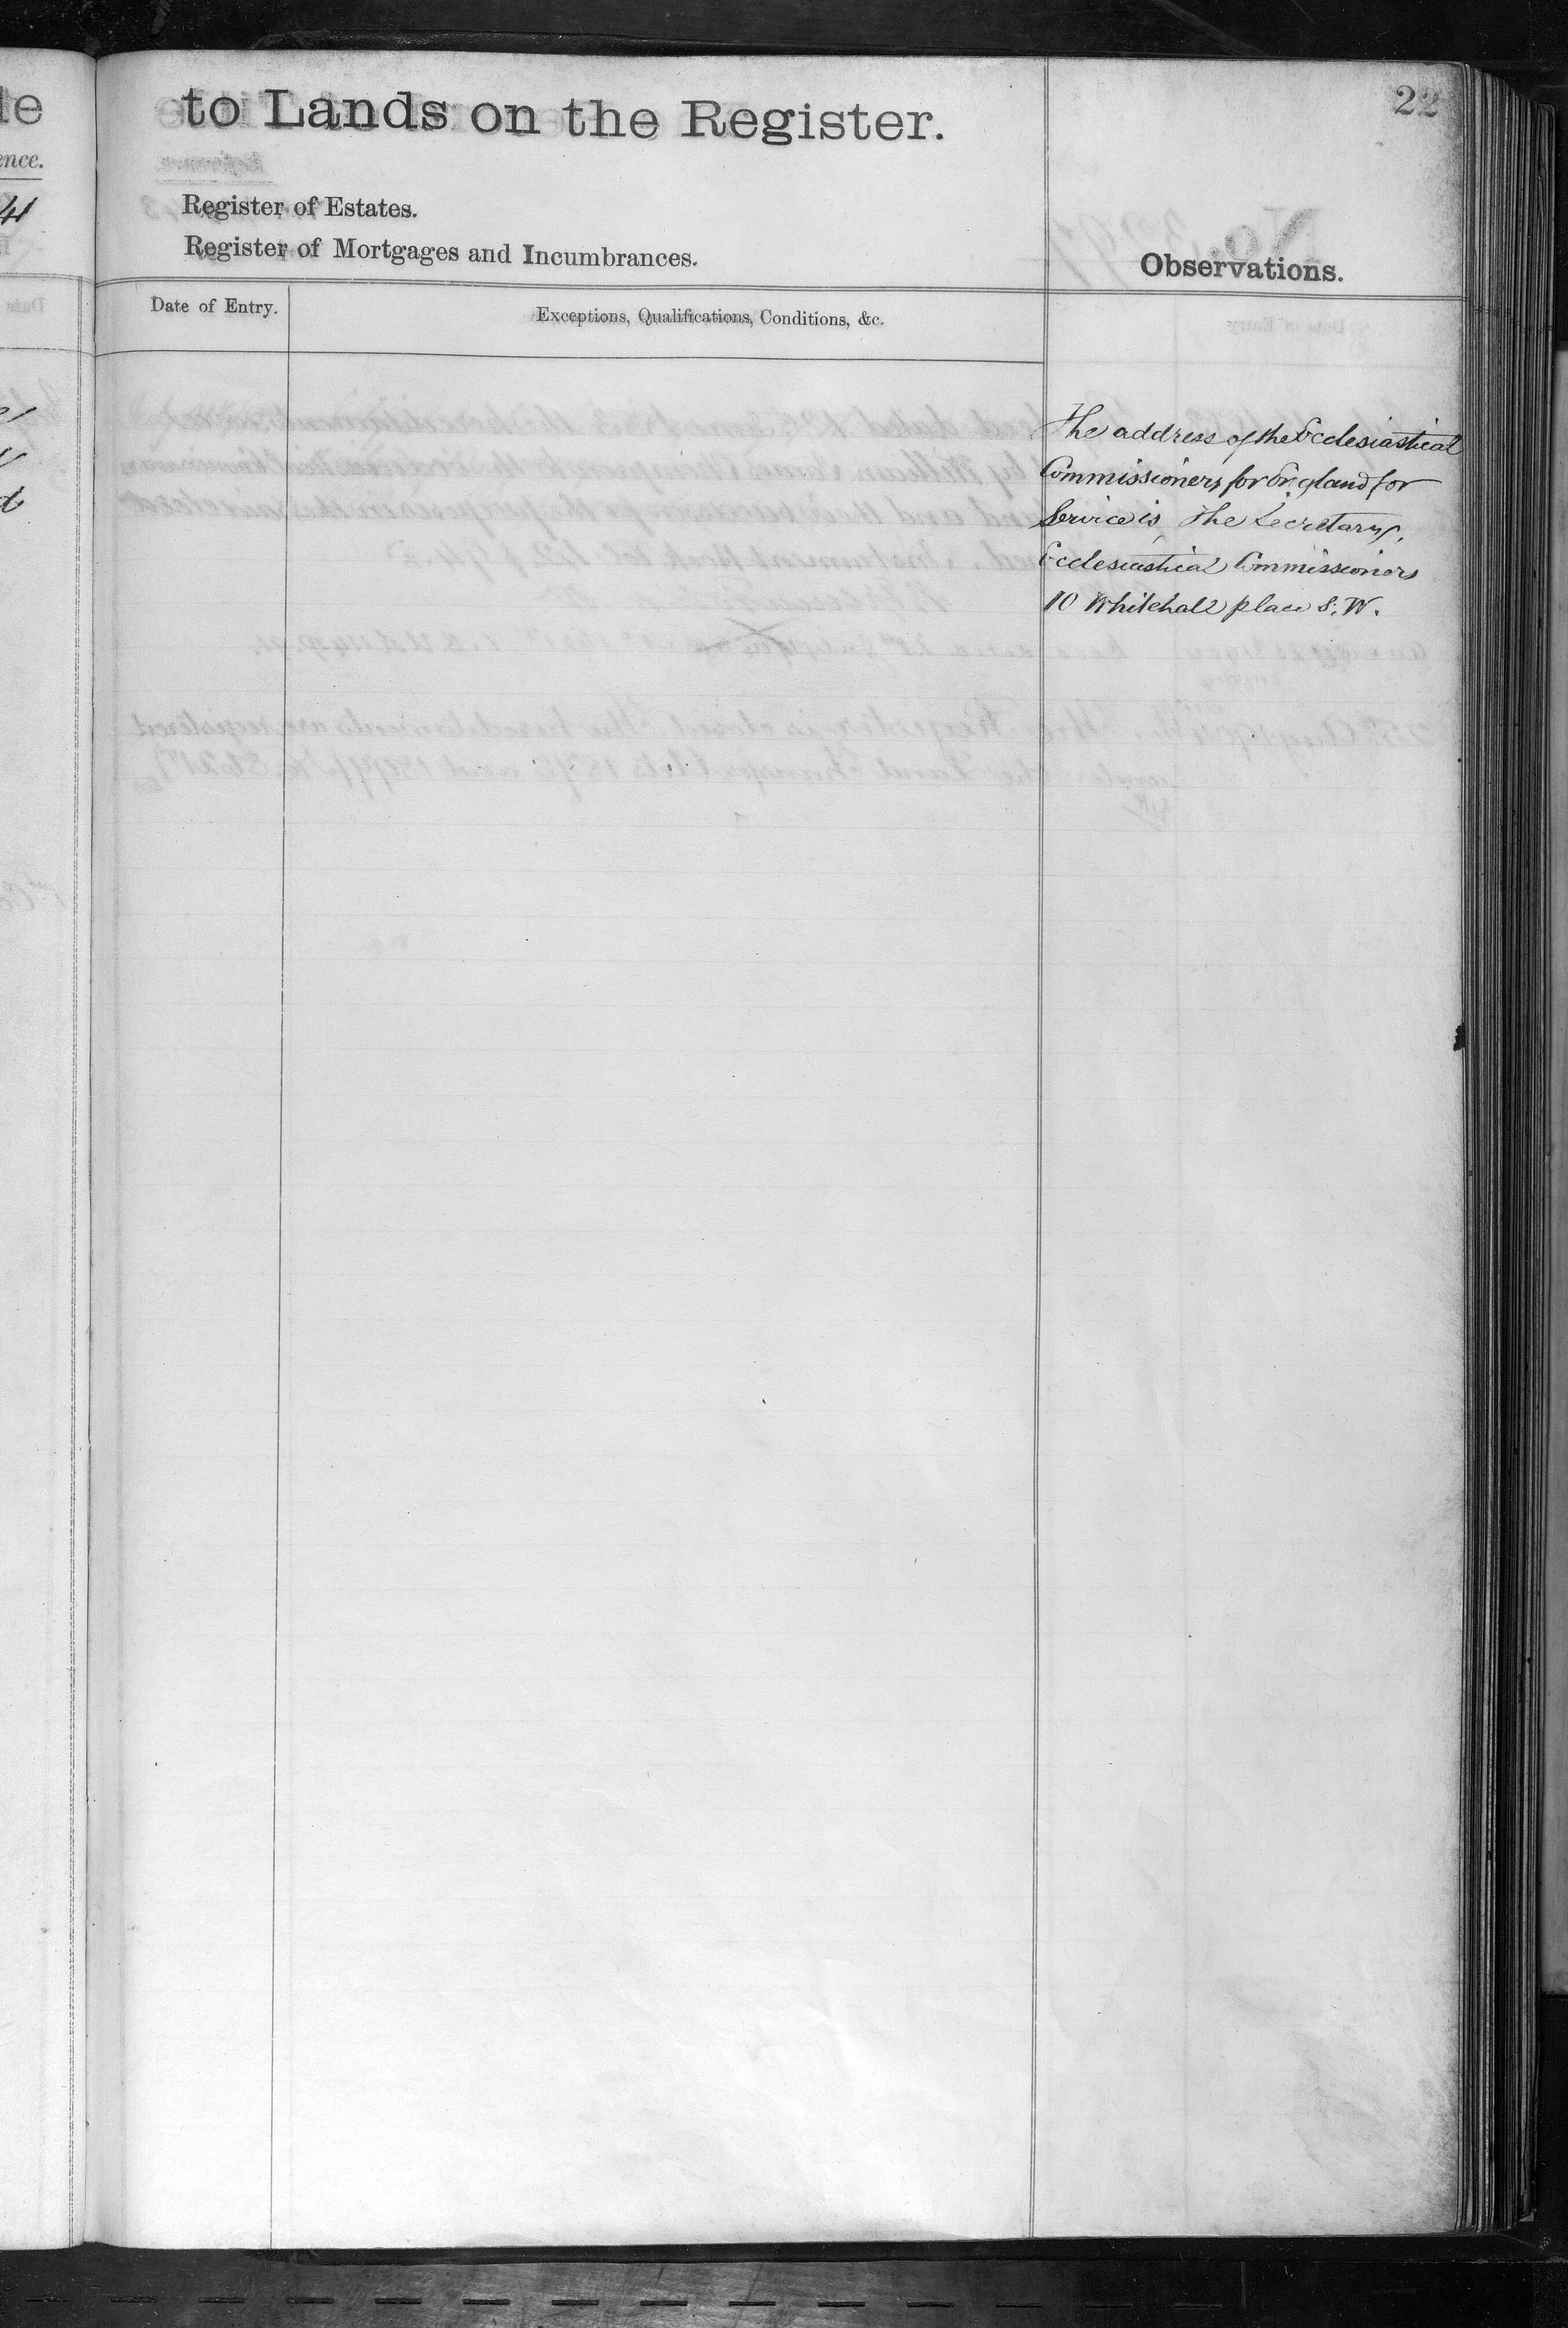 le
ence.
41
to Lands on the Register.
22
Register of Estates.
Register of Mortgages and Incumbrances.
Observations.
Date of Entry.
Exceptions, Qualifications, Conditions, &c.
The address of the Ecclesiastical
Commissioners for England for
Service is The Secretary,
Ecclesiastical Commissioners
10 Whitehall place S.W.